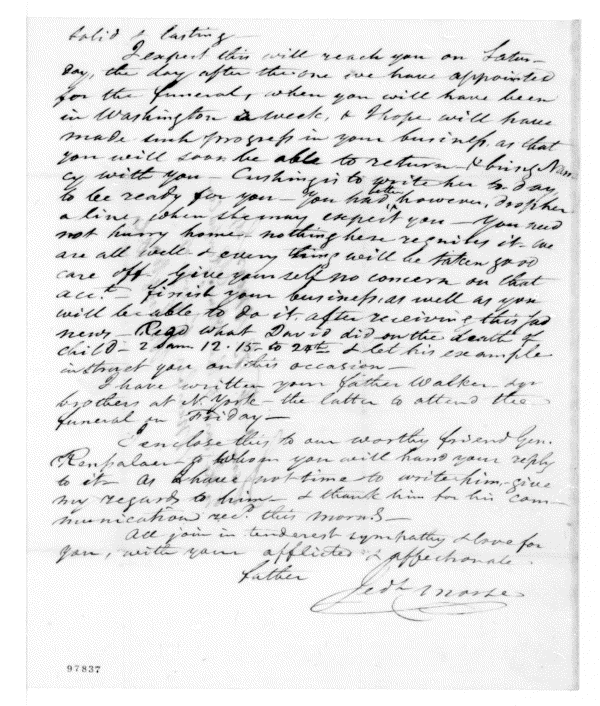 solid & lasting
I expect this will reach you on Satur-
day, the day after the one we have appointed
for the funeral, when you will have been
in Washington a week, & I hope will have
made such progress in your business, as that
you will soon be able to return & bring Nan-
cy with you - Cushing is to write her to day
to be ready for you - You had better, however, drop her
a line, when she may expect you - You need
not hurry home - nothing here requires it - We
are all well & every thing will be taken good
care off - Give yourself no concern on that
acct. - finish your business, as well as you
will be able to do it, after receiving this sad
news - Read what David did on the death of
child - 2 Sam 12. 15 - to 24th & let his example
instruct you on this occasion -
I have written your father Walker & yr
brothers at N. York - the latter to attend the
funeral on Friday -
I enclose this to our worthy friend Gen.
Rensalaer - to whom you will hand your reply
to it - As I have not time to write him - give
my regards to him - & thank him for his com-
munication recd. this morng -
All join in tenderest sympathy & love for
you, with your afflicted & affectionate
father
Jedh Morse
97837